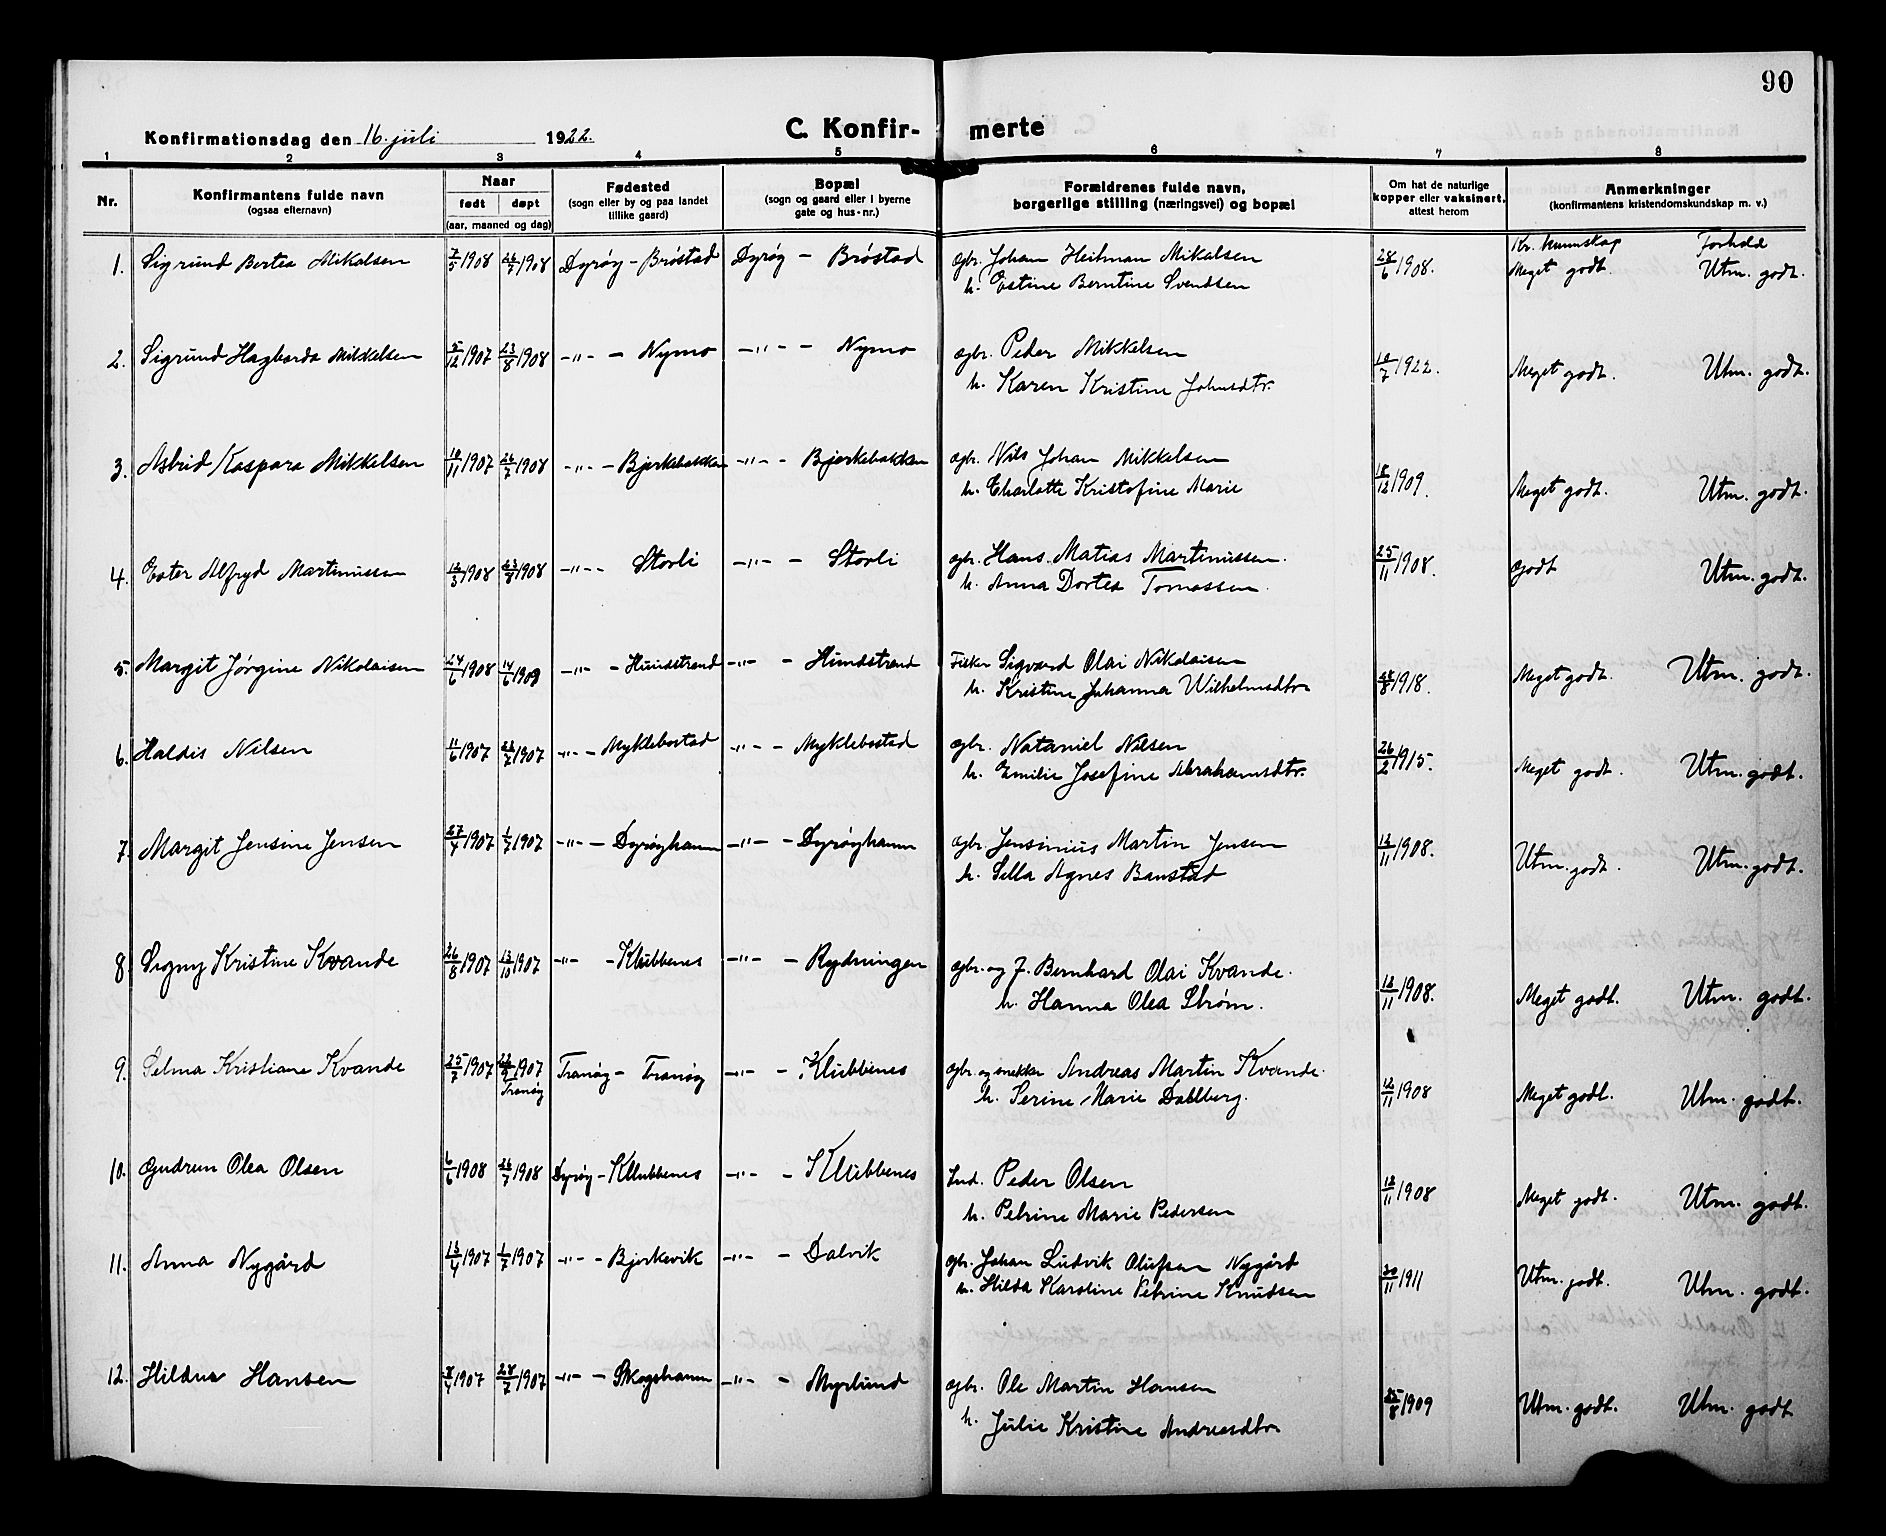 90
Konfirmationsdag den 16. juli 1922.
C. Konfirmerte
1 2 3 4 5 6 7 8
Nr. | Konfirmantens fulde navn (ogsaa efternavn) | Naar født døpt (aar, maaned og dag) | Fødested (sogn eller by og paa landet tillike gaard) | Bopæl (sogn og gaard eller i byerne gate og hus-nr.) | Forældrenes fulde navn, borgerlige stilling (næringsvei) og bopæl | Om hat de naturlige kopper eller vaksinert, attest herom | Anmerkninger (konfirmantens kristendomskundskap m. v.)
Kr. kunnskap Forhold
1. Sigrund Bertea Mikalsen 7/5 1908 26/7 1908 Dyrøy - Brøstad Dyrøy - Brøstad gbr. Johan Heitman Mikalsen 28/6 1908. Meget godt. Utm. godt.
h. Estine Berntine Svendsen
2. Sigrund Hagbarda Mikkelsen 5/12 1907 23/8 1908 -"- - Nymo -"- - Nymo gbr. Peder Mikkelsen 10/7 1922. Meget godt. Utm. godt.
h. Karen Kristine Johnsdtr.
3. Astrid Kaspara Mikkelsen 10/11 1907 26/7 1908 -"- - Bjerkebakken -"- - Bjerkebakken gbr. Nils Johan Mikkelsen 18/12 1909. Meget godt. Utm. godt.
h. Charlotte Kristofine Marie
4. Ester Alfryd Martinussen 12/3 1908 23/8 1908 -"- - Storli -"- - Storli gbr. Hans Matias Martinussen. 25/11 1908. Godt Utm. godt.
h. Anna Dortea Tomassen.
5. Margit Jørgine Nikolaisen 24/6 1908 14/6 1909 -"- - Hundstrand -"- - Hundstrand Fisker Sigvard Olai Nikolaisen 8 1918. Meget godt. Utm. godt.
h. Kristine Johanna Wilhelmsdtr
6. Haldis Nilsen 11/6 1907 28/7 1907 -"- - Myklebostad -"- - Myklebostad gbr. Nataniel Nilsen 26/2 1915. Meget godt. Utm. godt.
h. Emilie Josefine Abrahamsdtr.
7. Margit Jensine Jensen 27/4 1907 1/7 1907 -"- - Dyrøyhamn -"- - Dyrøyhamn gbr. Jensinius Martin Jensen 12/11 1908. Utm. godt. Utm. godt.
h. Sella Agnes Banstad
8. Signy Kristine Kvande 26/8 1907 13/10 1907 -"- - Klubbenes -"- - Rydningen gbr. og f. Bernhard Olai Kvande. 12/11 1908. Meget godt. Utm. godt.
h. Hanna Olea Strøm.
9. Selma Kristiane Kvande 25/7 1907 9 1907 Tranøy Tranøy - Tranøy -"- - Klubbenes gbr. og snekker Andreas Martin Kvande. 12/11 1908 Meget godt. Utm. godt.
h. Serine Marie Dahlberg.
10. Gudrun Olea Olsen 6/6 1908 26/7 1908 Dyrøy - Kllubbenes -"- - Klubbenes Ind. Peder Olsen 12/11 1908 Meget godt. Utm. godt.
h. Petrine Marie Pedersen
11. Anna Nygård 13/4 1907 1/7 1907 -"- - Bjerkevik -"- - Dalvik gbr. Johan Ludvik Olufsen Nygård 30/11 1911 Utm. godt. Utm. godt.
h. Hilda Karoline Petrine Knudsen
12. Hildur Hansen 8/4 1907 28/7 1907 -"- - Skogshamn -"- - Myrlund gbr. Ole Martin Hansen 25/8 1909 Utm. godt. Utm. godt
h. Julie Kristine Andreasdtr